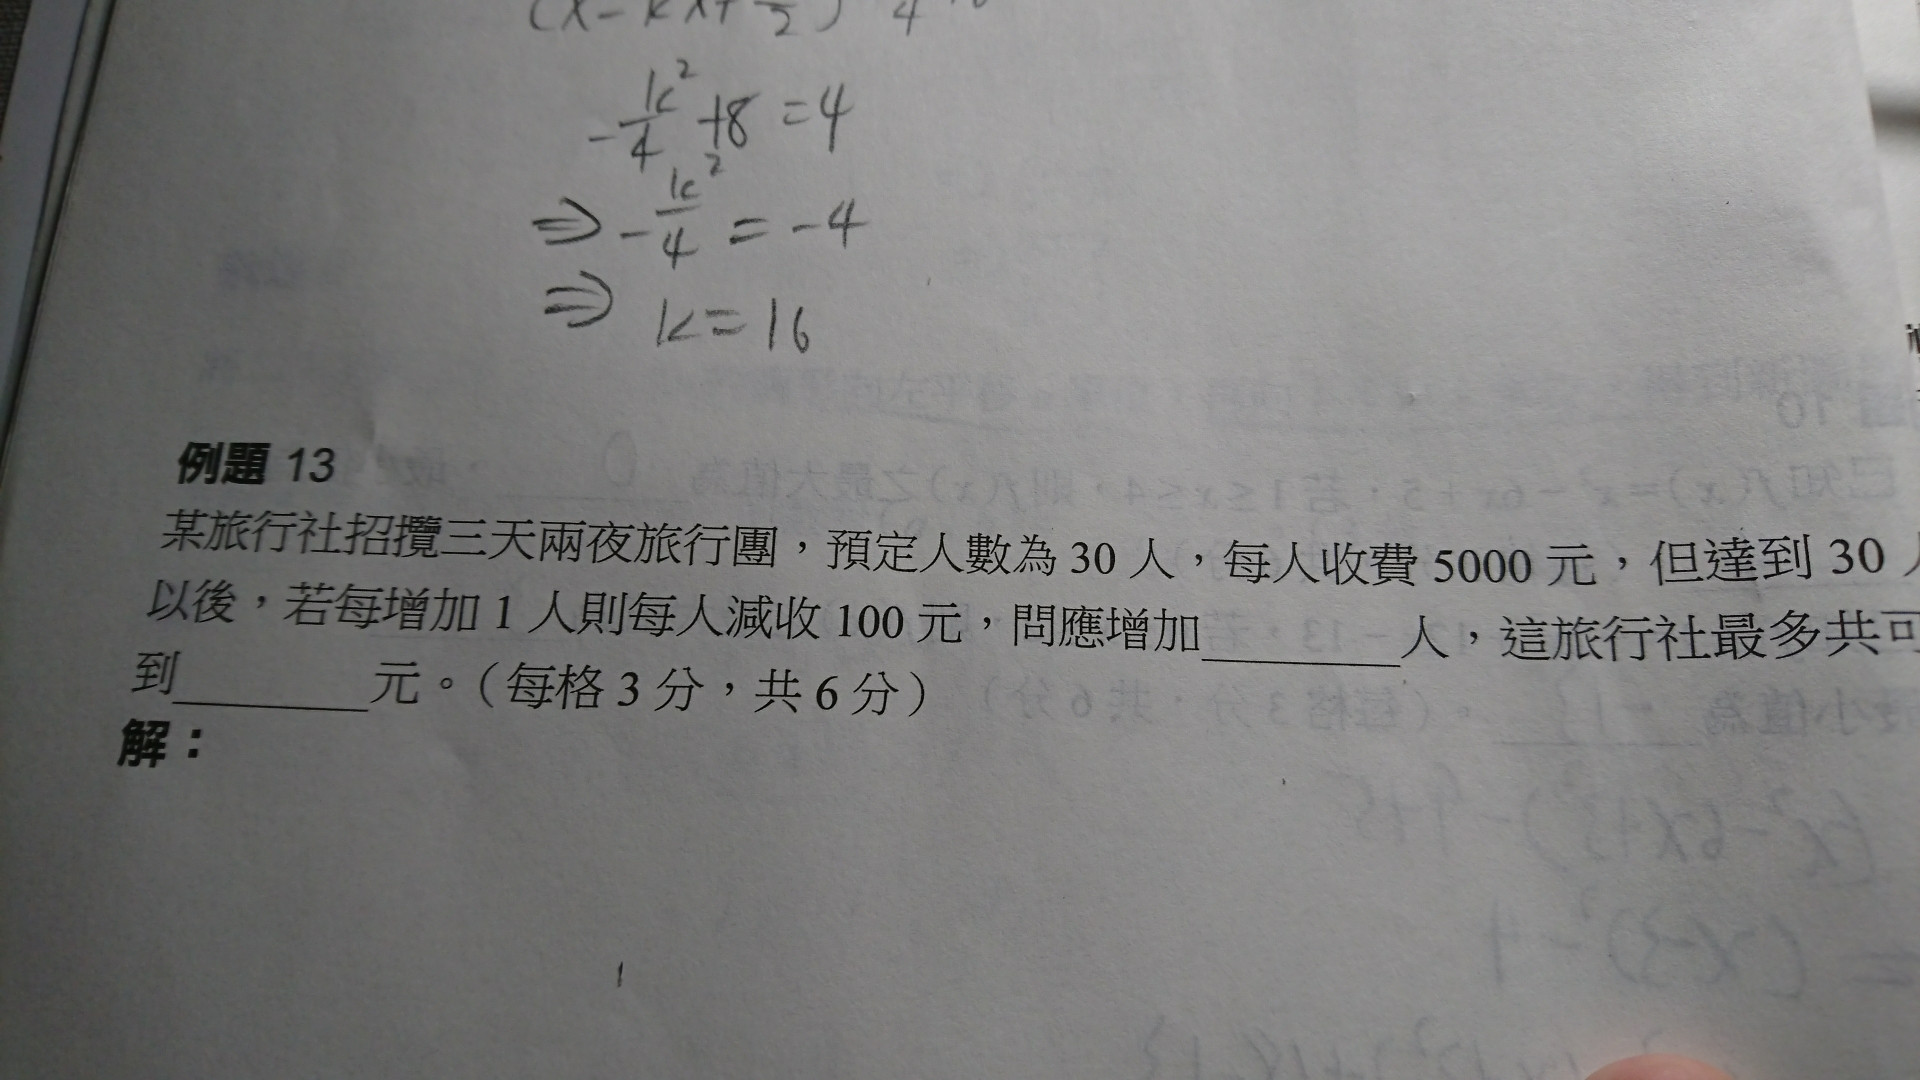 -k²/4 +8 = 4
⇒ -k²/4 = -4
⇒ k = 16
例題 13
某旅行社招攬三天兩夜旅行團，預定人數為 30 人，每人收費 5000 元，但達到 30
以後，若每增加 1 人則每人減收 100 元，問應增加________人，這旅行社最多共可
到________元。（每格 3 分，共 6 分）
解：